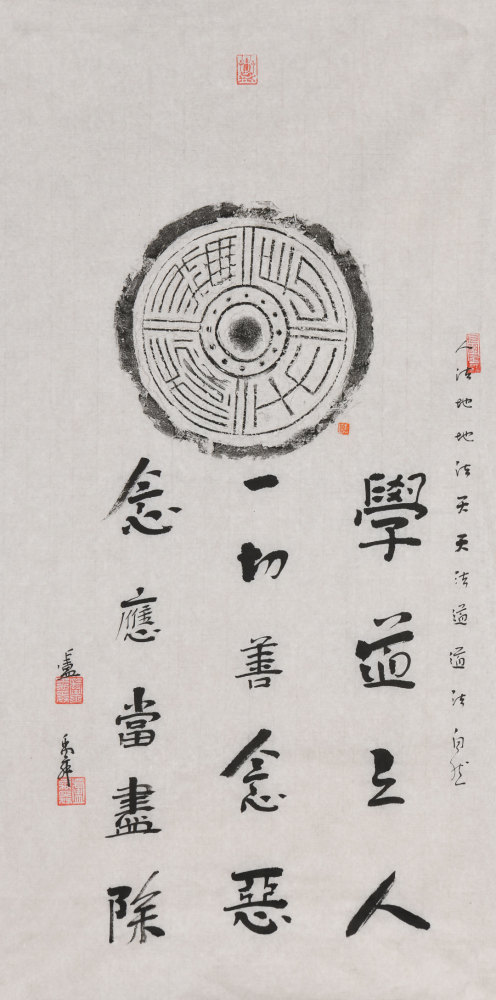 人法地地法天天法道道法自然
學道之人
一切善念惡
念應當盡除